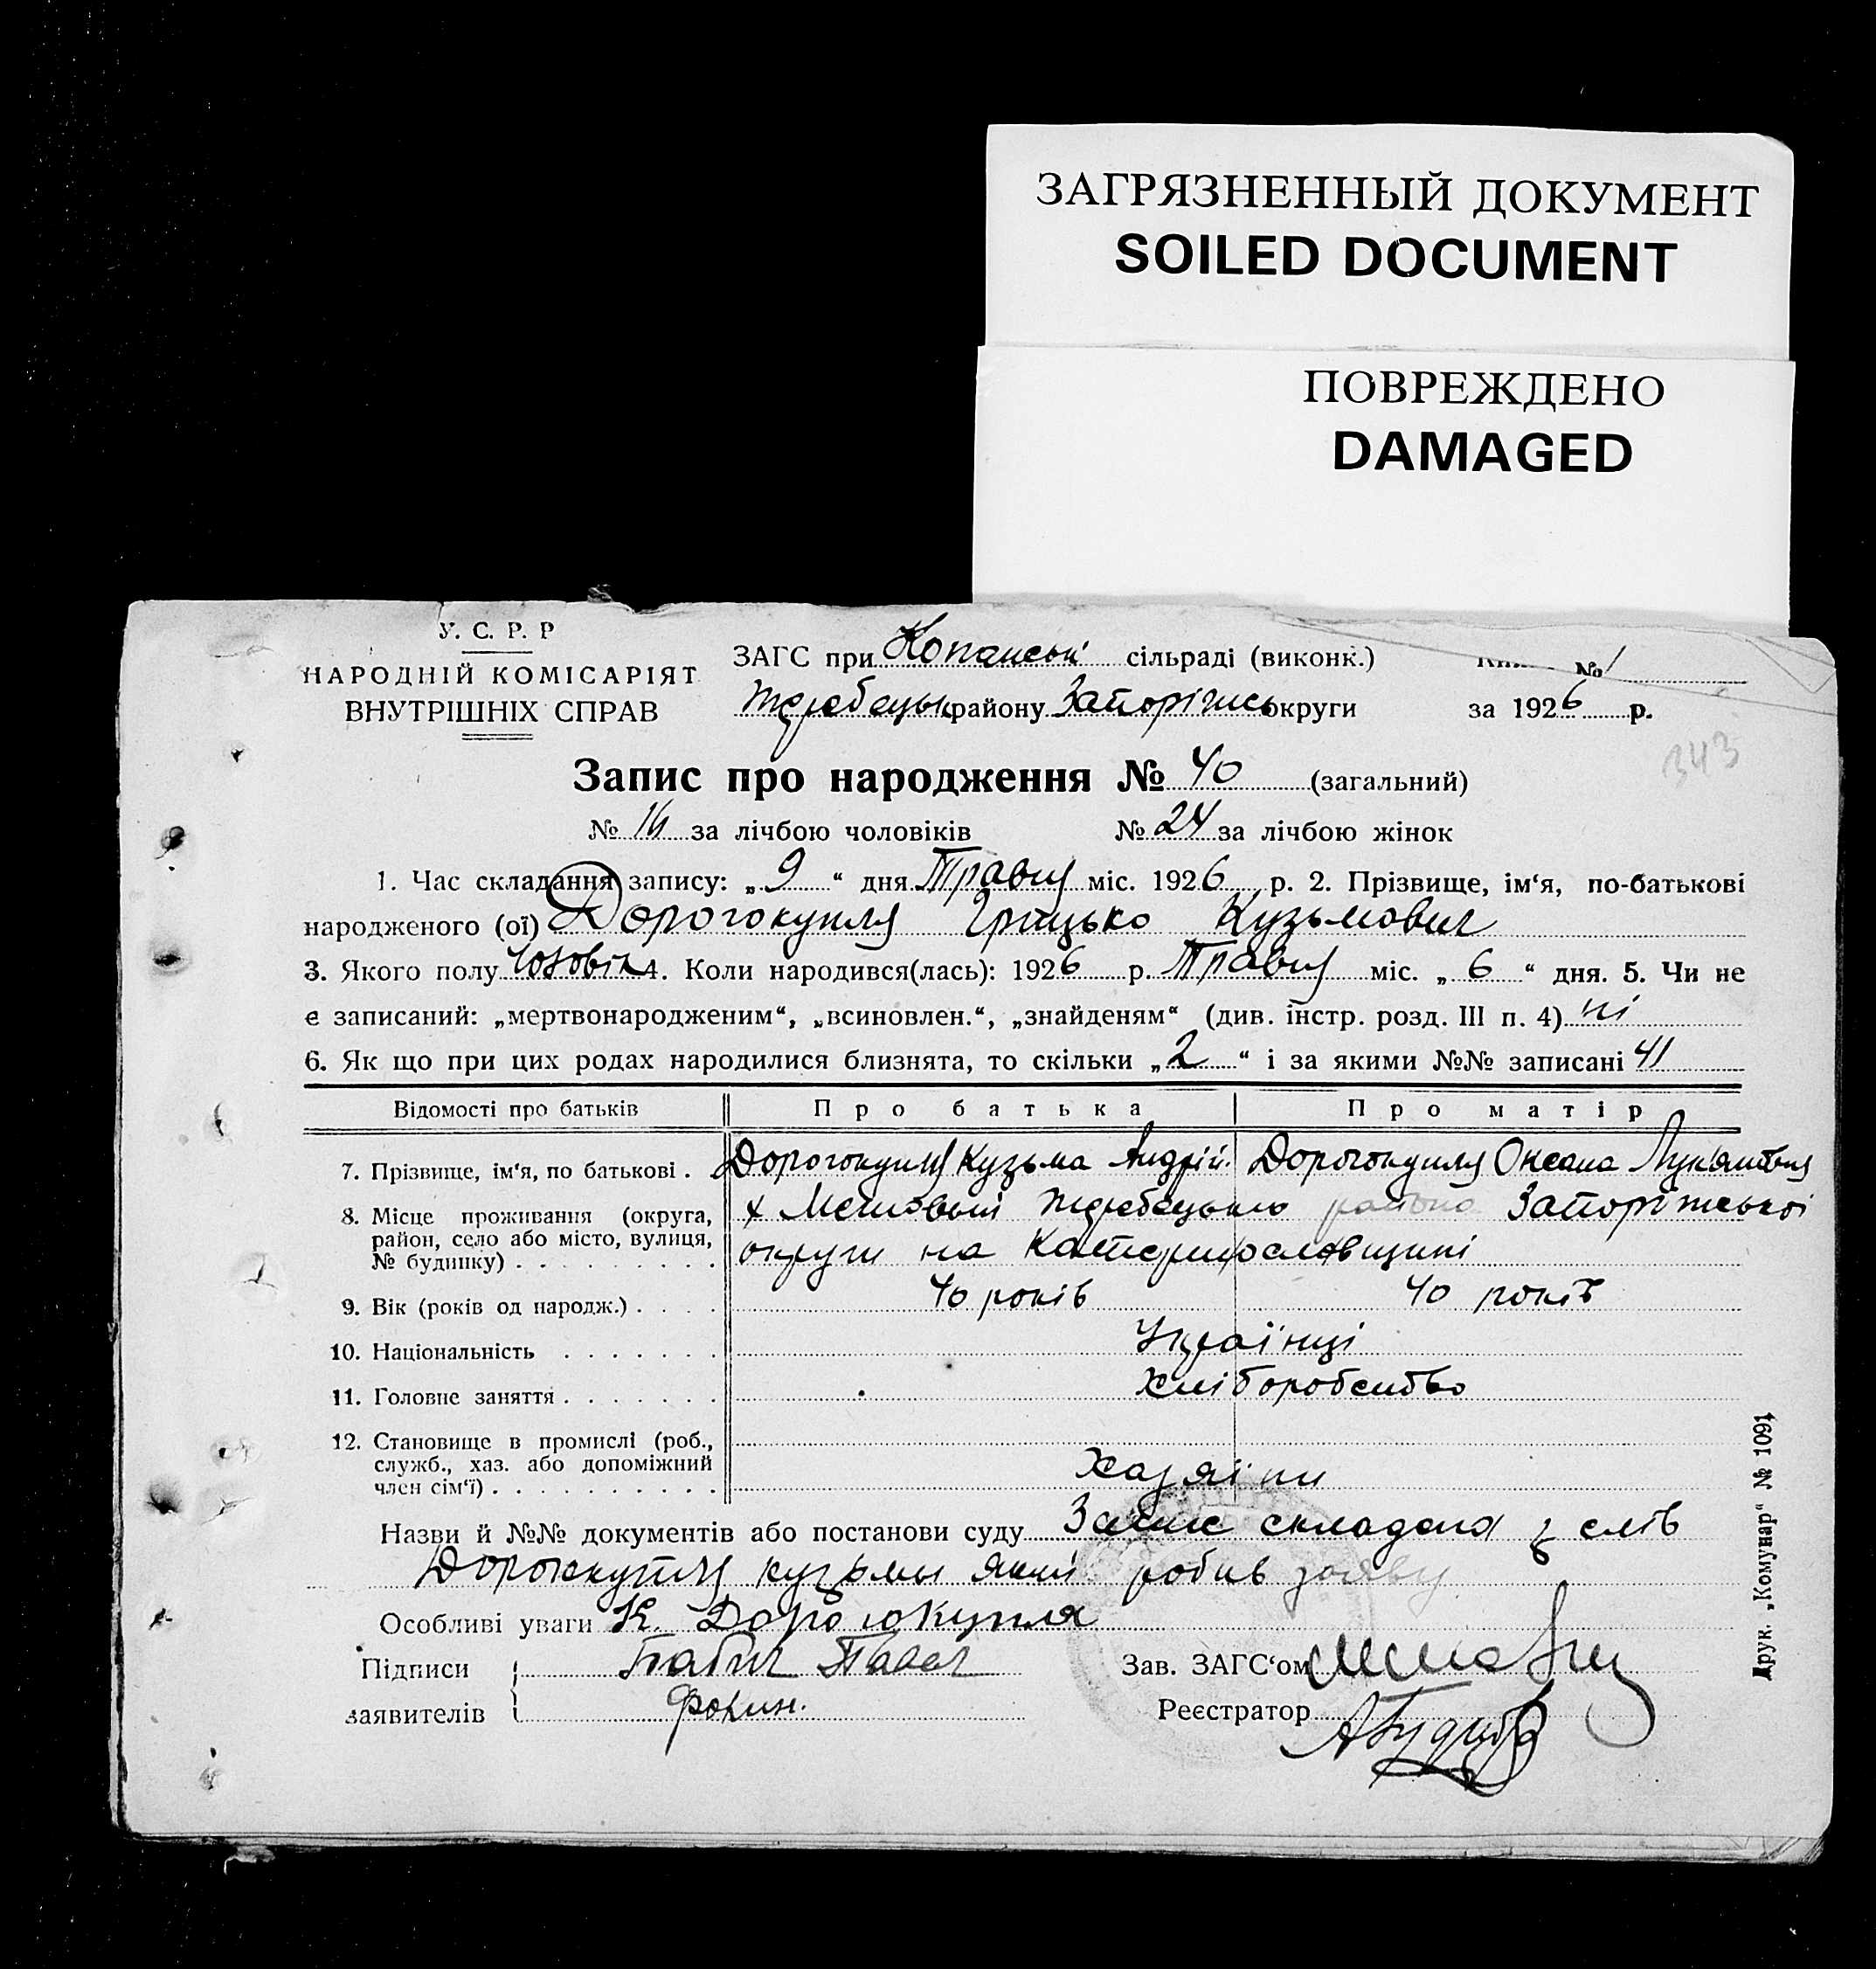 ЗАГРЯЗНЕННЫЙ ДОКУМЕНТ
SOILED DOCUMENT
ПОВРЕЖДЕНО
DAMAGED
У. С. Р. Р
НАРОДНІЙ КОМІСАРІЯТ
ВНУТРІШНІХ СПРАВ
ЗАГС при Копанській сільраді (виконк.) №1
Жеребецьк району Запоріжськ округи за 1926 р.
343
Запис про народження № 40 (загальний)
№ 16 за лічбою чоловіків № 24 за лічбою жінок
1. Час складання запису: „9“ дня Травня міс. 1926 р. 2. Прізвище, ім‘я, по-батькові
народженого (ої) Дорогокупля Грицько Кузьмович
3. Якого полу Чоловік 4. Коли народився(лась): 1926 р. Травня міс. „6“ дня. 5. Чи не
є записаний: „мертвонародженим“, „всиновлен.“, „знайденям“ (див. інстр. розд. III п. 4) ні
6. Як що при цих родах народилися близнята, то скільки „2“ і за якими №№ записані 41
Відомості про батьків Про батька Про матір
7. Прізвище, ім‘я, по батькові . Дорогокупля Кузьма Андрій. Дорогокупля Оксана Лук'янівна
8. Місце проживання (округа, район, село або місто, вулиця, № будинку) х Жеребецького района Запоріжської
округи на Катеринославщині
9. Вік (років од народж.) . . . . 40 років 40 років
10. Національність . . . . . . . Українці
11. Головне заняття . . . . . . . Хліборобство
12. Становище в промислі (роб., служб., хаз. або допоміжний член сім‘ї) . . . . . . . . . . Хазяїни
Назви й №№ документів або постанови суду Запис складена з слів
Дорогокупля Кузьмы який робив заяву
Особливі уваги К. Дорогокупля
Підписи заявителів Бабич Павел
Фокин.
Зав. ЗАГС‘ом
Реєстратор
Друк. „Комунар“ № 1091